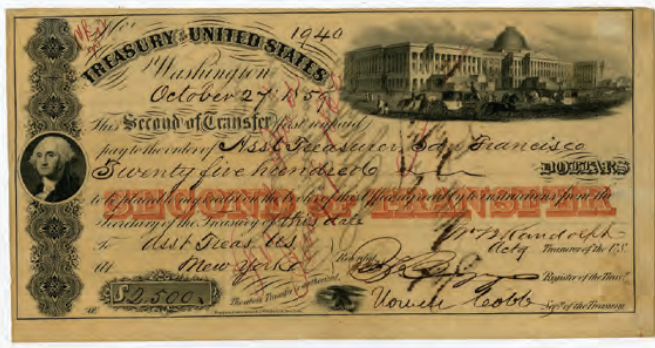 No. 1940
TREASURY OF THE UNITED STATES
Washington
October 27 185
This Second of Transfer first unpaid
pay to the order of Asst Treasurer, San Francisco
Twenty five hundred DOLLARS
SECOND OF TRANSFER
to be placed to my credit on the books of this Office agreeably to instructions from the
Secretary of the Treasury of this date
To Asst Treas. U.S.
At New York
W. B. Randolph
Actg Treasurer of the U.S.
Register of the Treasy
$2,500.
Howell Cobb Secy. of the Treasury